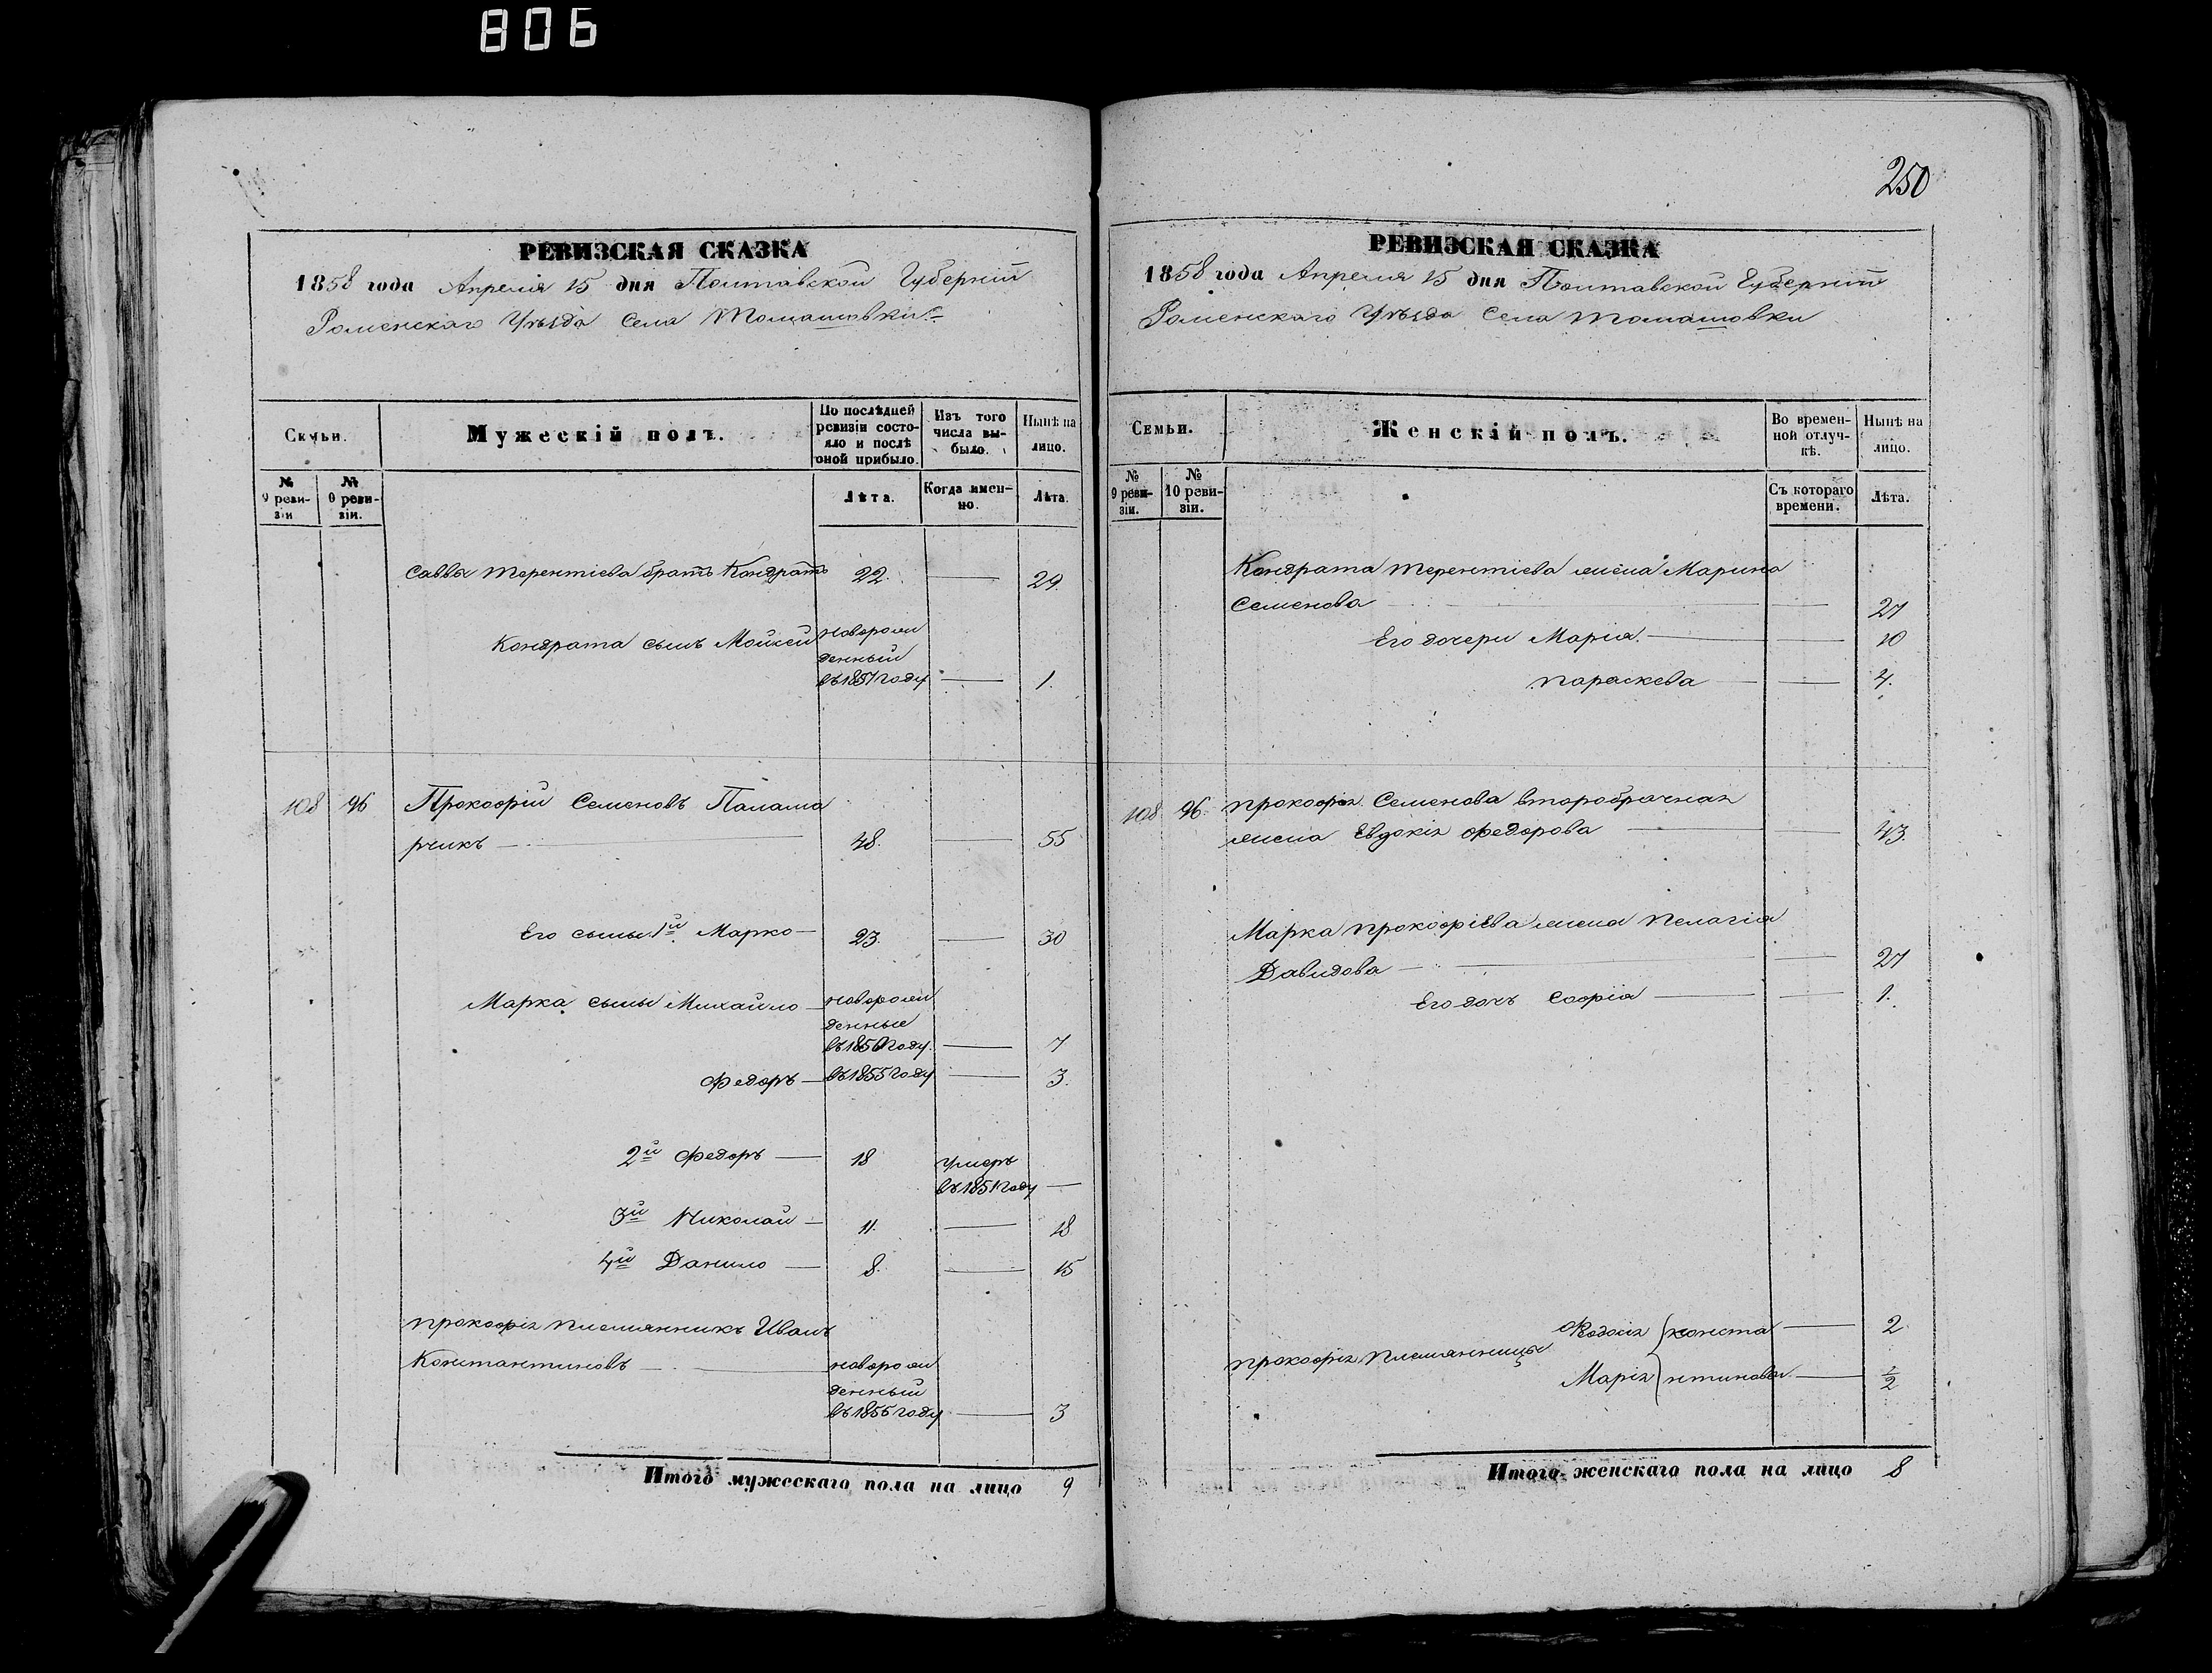 806
РЕВИЗСКАЯ СКАЗКА
1858 года Апреля 15 дня Полтавской Губерніи
Роменскаго Уѣзда Села Томашовки
Семьи.
Мужескій полъ.
По послѣдней ревизіи состояло и послѣ оной прибыло.
Изъ того числа выбыло.
Нынѣ на лицо.
№ 9 ревизіи
№ 0 ревизіи.
Лѣта.
Когда именно.
Лѣта.
Саввы Терентіева братъ Кондратъ 22. — 29.
Кондрата сынъ Мойсей новорожденный въ 1857 году — 1.
108 96 Прокофій Семеновъ Паламарчикъ — 48. — 55
Его сыны 1й Марко — 23. — 30
Марка сыны Михайло — новорожденные въ 1850 году. — 7
Федоръ — въ 1855 году — 3.
2й Федоръ — 18 умеръ въ 1851 году —
3й Николай — 11. — 18
4й Данило — 8. — 15
Прокофія племянникъ Иванъ
Константиновъ — новорожденный въ 1855 году — 3
Итого мужескаго пола на лицо 9
250
РЕВИЗСКАЯ СКАЗКА
1858 года Апреля 15 дня Полтавской Губерніи
Роменскаго Уѣзда Села Томашовки
Семьи.
Женскій полъ.
Во временной отлучкѣ.
Нынѣ на лицо.
№ 9 ревизіи.
№ 10 ревизіи.
Съ котораго времени.
Лѣта.
Кондрата Терентіева жена Марина
Семенова — — 27
Его дочери Марія. — — 10
Параскева — — 4.
108 96. Прокофія Семенова второбрачная
жена Евдокія Федорова — — 43.
Марка Прокофіева жена Пелагія
Давидова — — 27
Его дочь Софія — — 1.
Прокофія племянницы
Феодосія } Конста — 2
Марія } нтиновы — ½
Итого женскаго пола на лицо 8